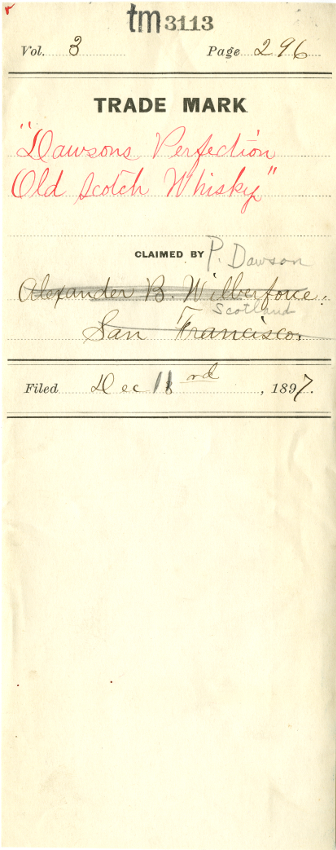 tm3113
Vol. 3 Page 296
TRADE MARK
"Dawsons Perfection
Old Scotch Whisky"
CLAIMED BY P. Dawson
Alexander B. Wilberforce.
Scotland
San Francisco.
Filed Dec rd, 1897.